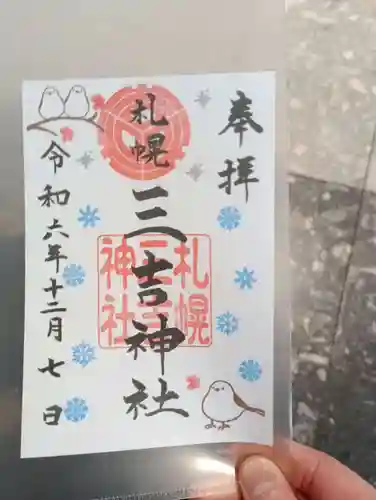 奉拝
札幌
三吉神社
札幌
三吉
神社
令和六年十二月七日